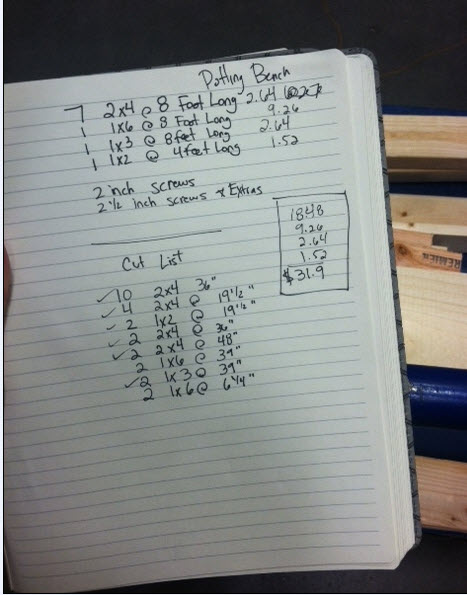 Potting Bench
7 2x4 @ 8 Foot Long 2.64
1 1x6 @ 8 Foot Long 9.26
1 1x3 @ 8 feet Long 2.64
1 1x2 @ 4 feet Long 1.52
2 inch screws
2 1/2 inch screws * Extras
1848
9.26
2.64
1.52
$31.9
Cut List
✓10 2x4 36"
✓4 2x4 @ 19 1/2"
✓2 1x2 @ 19 1/2"
✓2 2x4 @ 36"
✓2 2x4 @ 48"
2 1x6 @ 39"
✓2 1x3 @ 39"
2 1x6 @ 6 1/4"
PREMIER